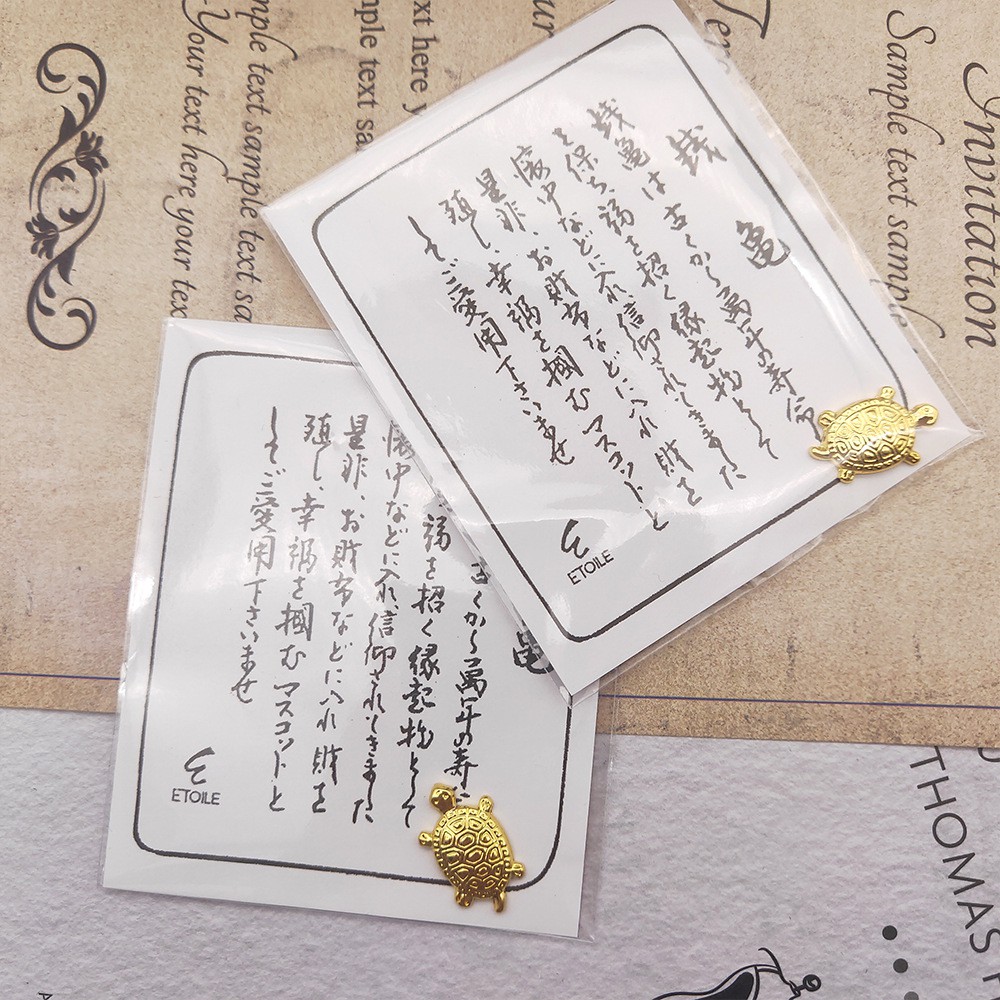 銭亀
銭亀は古くから萬年の寿命
を保ち、福を招く縁起物として
懐中などに入れ信仰されてきました
是非、お財布などに入れ財を
殖し、幸福を掴むマスコットと
してご愛用下さいませ
ETOILE
亀
古くから萬年の寿
福を招く縁起物として
懐中などに入れ、信仰されてきました
是非、お財布などに入れ財を
殖し、幸福を掴むマスコットと
してご愛用下さいませ
ETOILE
Invitation
Sample text sample
text here
sample text sa
Sample text sample text sa
Your text here your text
THOMAS